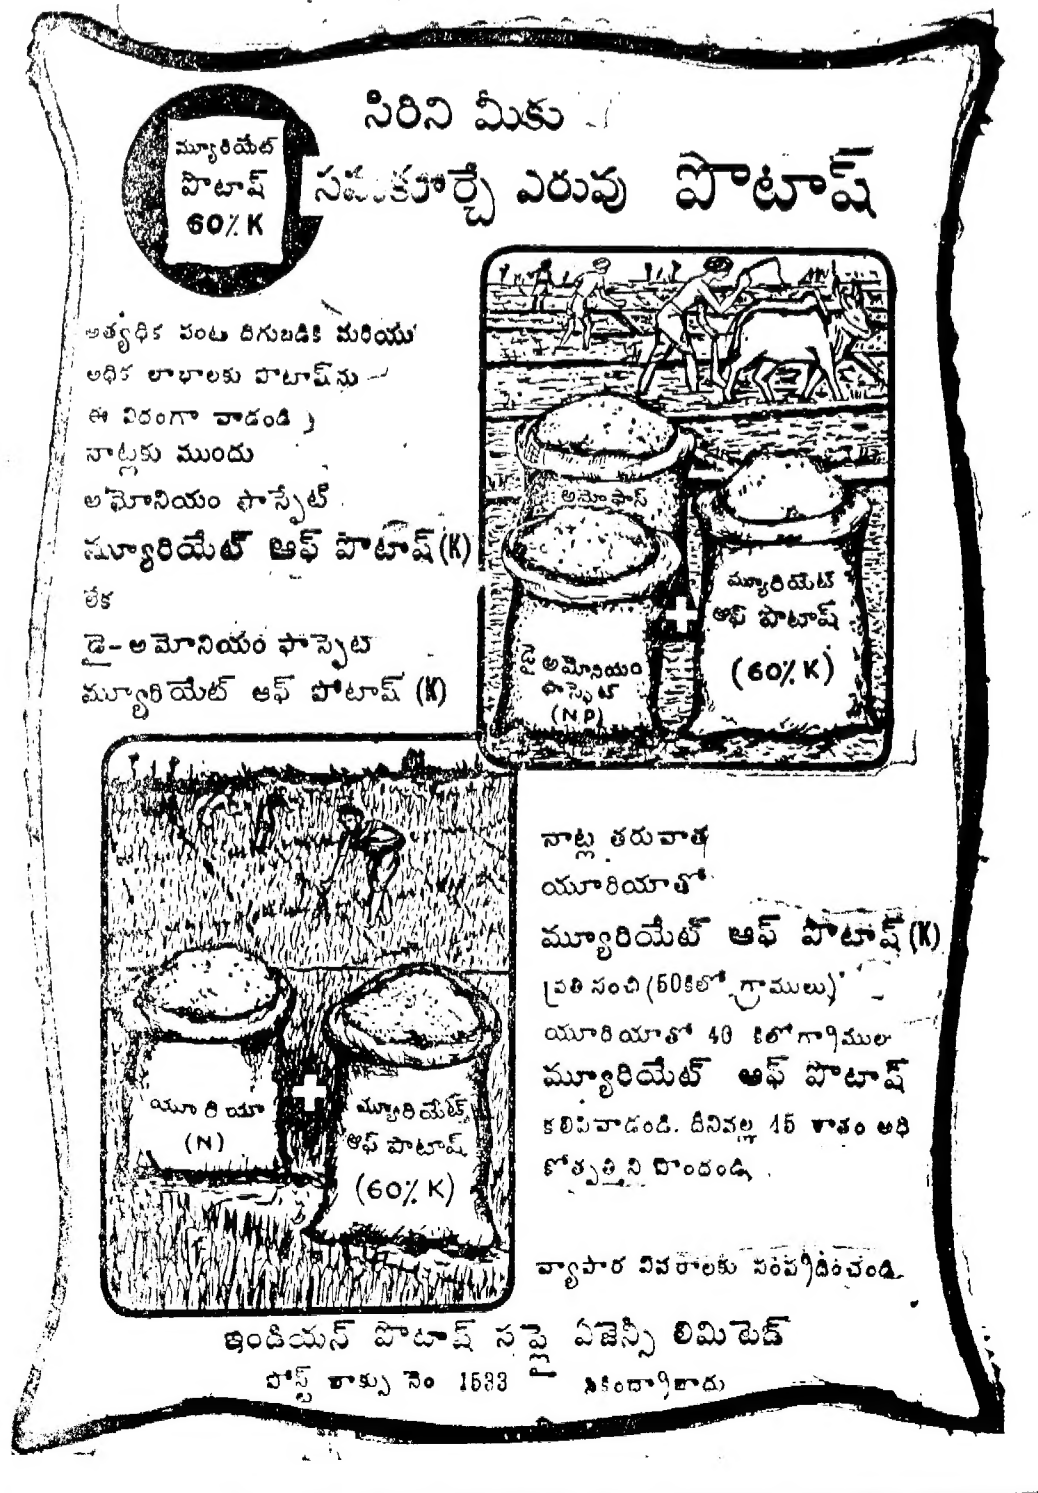 సిరిని మీకు
సమకూర్చే ఎరువు పొటాష్
మ్యూరియేట్
పొటాష్
60% K
అత్యధిక పంట దిగుబడికి మరియు
అధిక లాభాలకు పొటాష్‌ను
ఈ విదంగా వాడండి
నాట్లకు ముందు
అమోనియం ఫాస్ఫేట్
మ్యూరియేట్ ఆఫ్ పొటాష్ (K)
లేక
డై-అమోనియం ఫాస్ఫేట్
మ్యూరియేట్ ఆఫ్ పోటాష్ (K)
అమోఫాస్
డై అమోనియం
ఫాస్ఫేట్
(N P)
మ్యూరియేట్
ఆఫ్ పొటాష్
(60% K)
నాట్ల తరువాత
యూరియాతో
మ్యూరియేట్ ఆఫ్ పొటాష్ (K)
ప్రతి సంచి (50కిలో గ్రాములు)
యూరియాతో 40 కిలోగ్రాముల
మ్యూరియేట్ ఆఫ్ పొటాష్
కలిపివాడండి. దీనివల్ల 15 శాతం అధి
కోత్పత్తి ని పొందండి.
యూరియా
(N)
మ్యూరియేట్
ఆఫ్ పొటాష్
(60% K)
వ్యాపార వివరాలకు సంప్రదించండి.
ఇండియన్ పొటాష్ సప్లై ఏజెన్సీ లిమిటెడ్
పోస్ట్ బాక్సు నెం 1533 సికింద్రాబాదు